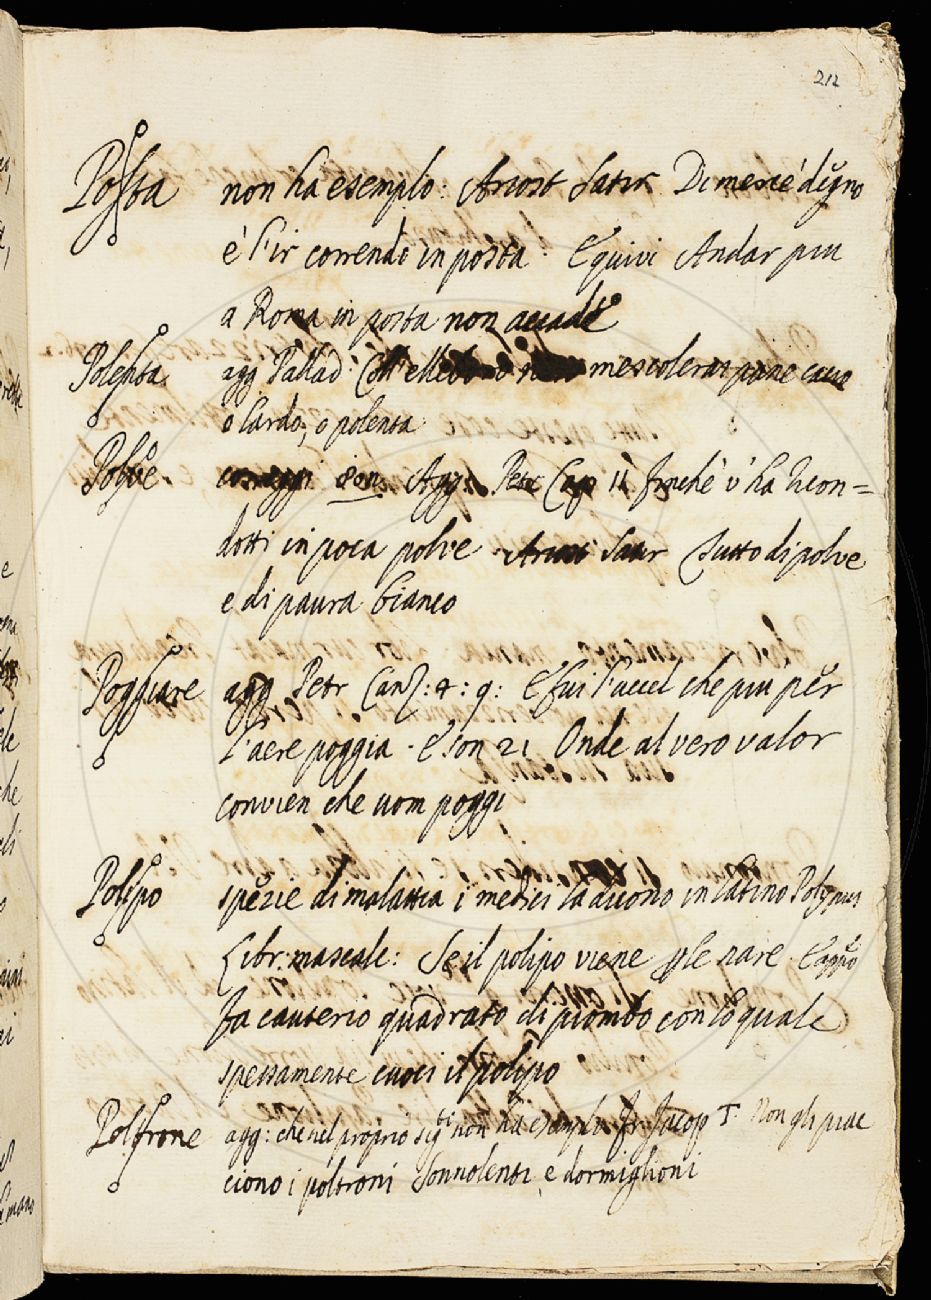 212
Posta non ha esempio: Ariost Satir Di me se è degno
è l'ir correndo in posta. E quivi Andar piu
a Roma in posta non accade
Polenta agg Pallad: mescolerai pane
o Cardo, o polenta
Polve correggi son. Agg: Petr Cap 11 finchè v'ha ricon=
dotti in poca polve Ariost Satir Tutto di polve
e di paura bianco
Poggiare agg Petr Canz: 4: 9: E fui l'uccel che piu per
l'aere poggia. E son 21 Onde al vero valor
convien che uom poggi
Polipo spezie di malattia i medici la dicono in latino Polypus
Libr: mascale: Se il polipo viene nelle nare
fa cauterio quadrato di piombo con lo quale
spessamente cuoci il polipo
Poltrone agg: che nel proprio sigto non ha esempli Fr: Jacop T. Non gli piac
ciono i poltroni Sonnolenti, e dormiglioni